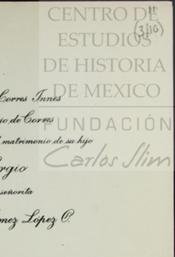 11
(3/16)
CENTRO DE
ESTUDIOS
DE HISTORIA
DE MEXICO
FUNDACIÓN
Carlos Slim
Corres Innes
io de Corres
matrimonio de su hijo
rgio
señorita
mez López C.